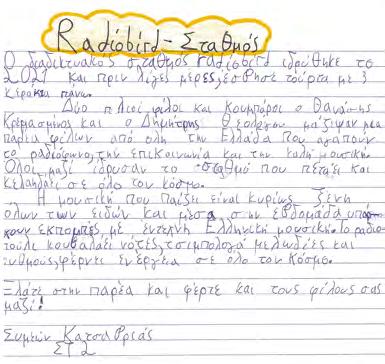 Radiobird - Σταθμός
Ο διαδικτυακός σταθμός radiobird ιδρύθηκε το
2021 και πριν λίγες μέρες, έσβησε τούρτα με 3
κεράκια πάνω.
Δύο παλιοί φίλοι και κουμπάροι ο Θανάσης
Κρεμασμένος και ο Δημήτρης Θεολόγου μάζεψαν μια
παρέα φίλων από όλη την Ελλάδα που αγαπούν
το ραδιόφωνο, την επικοινωνία και την καλή μουσική.
Όλοι μαζί ίδρυσαν το σταθμό που πετάει και
κελαηδάει σε όλο τον κόσμο.
Η μουσική που παίζει είναι κυρίως ξένη
όλων των ειδών και μέσα στην εβδομάδα υπάρ-
χουν εκπομπές με έντεχνη Ελληνική μουσική. Το ραδιο-
πουλι κουβαλάει νότες, τσιμπολογά μελωδίες και
ρυθμούς, φέρνει ενέργεια σε όλο τον κόσμο.
Ελάτε στην παρέα και φέρτε και τους φίλους σας
μαζί!
Συμεών Κατσαβριάς
ΣΤ2